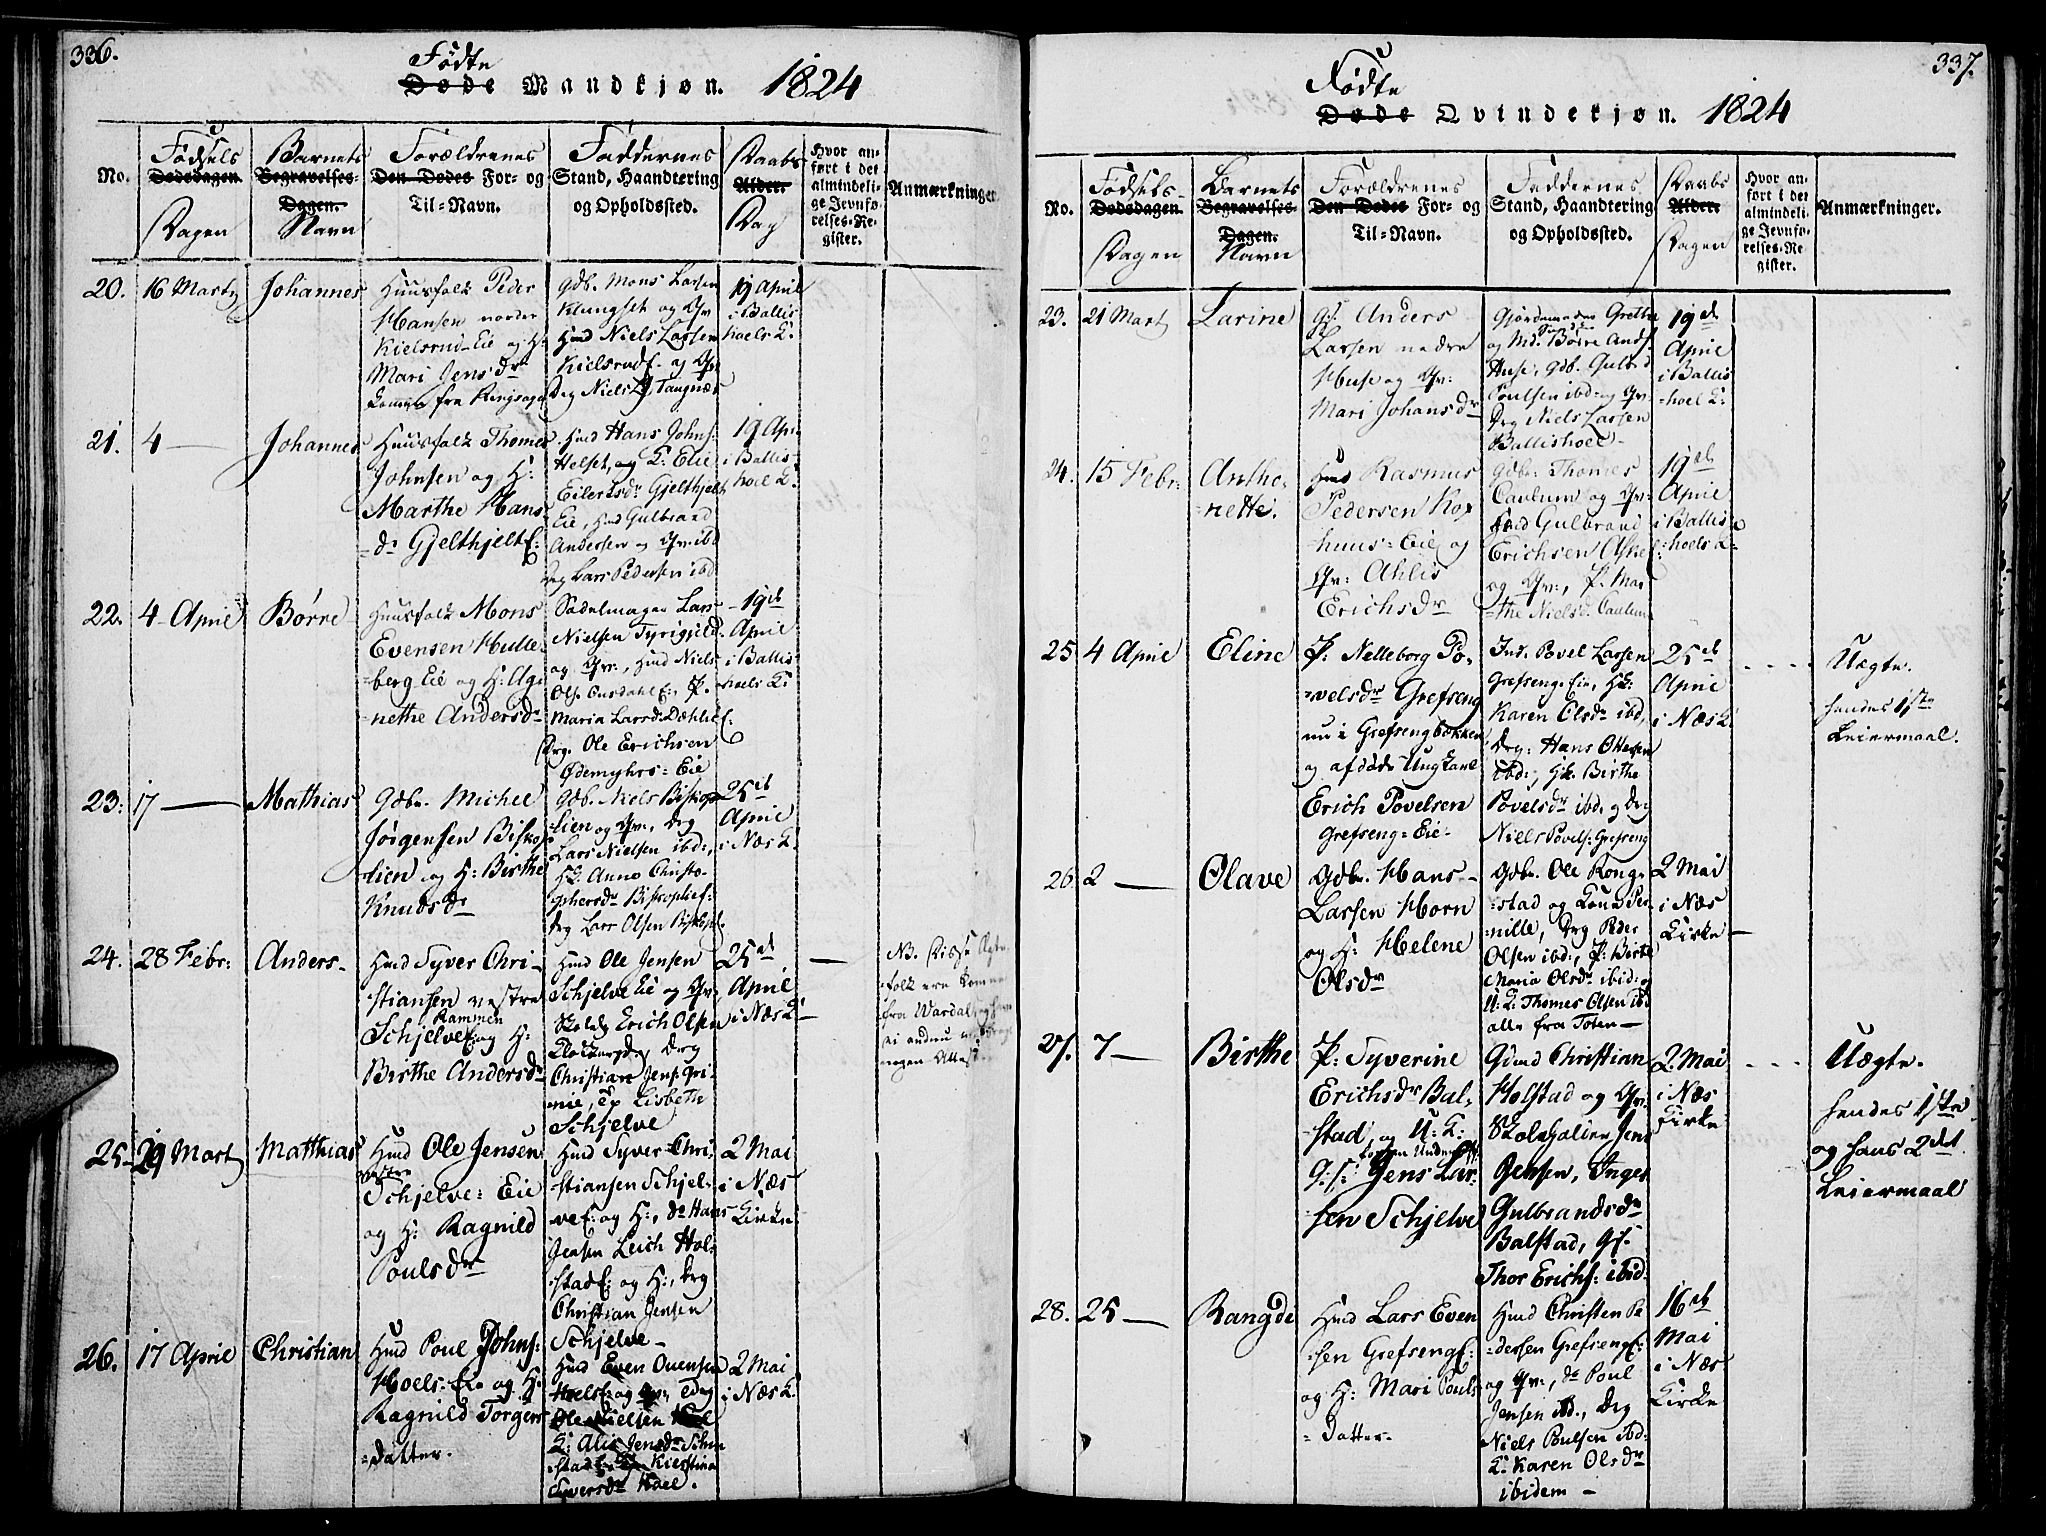 336.
Fødte
Døde Mandkjøn. 1824
No.
Fødsels
Dødsdagen
Dagen
Barnets
Begravelses-
Dagen.
Navn
Forældrenes
Den Dødes For- og
Til-Navn.
Faddernes
Stand, Haandtering
og Opholdssted.
Daabs
Alder.
Dag
Hvor an-
ført i det
almindeli-
ge Jevnfø-
relses-Re-
gister.
Anmærkninger
20.
16 Marty
Johannes
Huusfolk Peder
Hansen nordre
Kielsrud-Eie og H:
Mari Jensdr
komne fra Ringsager
Gdb. Mons Larsen
Klungset og Qv
Hmd Niels Larsen
KielsrudE. og Qv:
Drg Niels Tangnæs
19 April
i Ballis
hoels K:
21.
4 —
Johannes
Huusfolk Thomes
Johnsen og H:
Marthe Hans-
=dr GjelthjeltE:
Hmd Hans Johns:
Helset, og K: Elie
Eilertsdr Gjelthjelt
Eie, Hmd Gulbrand
Andersen og Qv: ibd
Drg Lars Pedersen ibd
19 April
i Ballis-
hoel K:
22.
4 April
Børre
Huusfolk Mons
Evensen Hulle-
=berg Eie og H: Ag-
nethe Andersdr
Sadelmager Lars
Nielsen Tyrigjeld
og Qv:, Hmd Niels
Ols: E:, P:
Maria Larsdr DæhlieE:
Drg. Ole Erichsen
Ødemyhrs-Eie
19de
April
i Ballis
hoels K:
23.
17 —
Mathias
Gdbr. Michel
Jørgensen Biskop
lien og H: Birthe
Knudsdr
Gdb. Niels Biskop
lien og Qv:, Drg
Lars Nielsen ibd:,
HK: Anne Christo-
phersdr
Drg Lars Olsen
25de
April
i Næs K:
24.
28 Febr:
Anders
Hmd Syver Chri-
stiansen vestre
Rammen
SchjelveE og H:
Birthe Andersdr
Hmd Ole Jensen
Schjelve Eie og Qv:
Erich Olsen
Drg
Christian Jens:
mie, Lisbeth
Schjelve
25de
April
i Næs K:
—
NB. Disse Ægte
folk ere komne
fra Wardal, og have
ei endnu
nogen Attest
25
29 Mart
Matthias
Hmd Ole Jensen
vestre
Schjelve-Eie
og H: Ragnild
Poulsdr
Hmd Syver Chri-
stiansen Schjel-
veE: og H:, do Hans
Jensen Leich Hol-
stadE: og H:, Drg
Christian Jensen
Schjelve
2 Mai
i Næs
Kirke
26.
17 April
Christian
Hmd Poul Johns:
Hoels-Eie og H:
Ragnild Torgers
datter.
Hmd Even Ouensen
HoelsE: og Qv:, Drg
Ole Nielsen Hoel
K: Alis Jensdr
stad Kierstina
Syversdr Hoel.
2 Mai
i Næs K:
337.
Fødte
Døde Qvindekjøn. 1824
No.
Fødsels-
Dødsdagen.
Dagen
Barnets
Begravelses-
Dagen.
Navn
Forældrenes
Den Dødes For- og
Til-Navn.
Faddernes
Stand, Haandtering
og Opholdssted.
Daabs
Alder.
Dagen
Hvor an-
ført i det
almindeli-
ge Jevnfø-
relses-Re-
gister.
Anmærkninger.
23.
21 Mart
Larine
Gf: Anders
Larsen nedre
Huse og Qv:
Mari Johansdr
Gjordemoder Grethe
og Md. Børre Ands:
Huse, Gdb. Gulbrd
Poulsen ibd: og Qv:
Drg Niels Larsen
Ballishoel
19de
April
i Ballis
hoel K:
24.
15 Febr:
Antho-
nette.
Hmd Rasmus
Pedersen Kop
huus-Eie og
Qv: Ahlis
Erichsdr
Gdbr. Thomes
Caulum og Qv:
Hmd Gulbrand
Erichsen AskeE:
og Qv:, P: Mar-
the Nielsdr Caulum
19de
April
i Ballis
hoels K:
25
4 April
Eline
P: Nelleborg Po-
velsdr Grefseng
nu i Grefsengbækken
og afdøde Ungkarl
Erich Povelsen
Grefseng-Eie
Ind. Povel Larsen
Grefseng-Eie, HK:
Karen Olsdr ibd,
Drg: Hans Ottesen
ibd:, GK: Birthe
Povelsdr ibd: og Drg
Niels Povels: Grefseng
25de
April
i Næs K:
Uægte.
hendes 1ste
Leiermaal.
26
2 —
Olave
Gdbr. Hans
Larsen Horn
og H: Helene
Olsdr
Gdbr. Ole Kong-
stad og Kone Per-
nille, Drg Peder
Olsen ibd:, P: Birte
Maria Olsdr ibid: og
U:K: Thomes Olsen ibd
alle fra Toten
2 Mai
i Næs
Kirke
27.
7 —
Birthe
P: Syverine
Erichsdr Bal-
stad, og U:K:
G:f: Jens Lar-
sen Schjelve
Gdmd Christian
Holstad og Qv:
Jens
Jensen, Inger
Gulbrandsdr
Balstad, Gf:
Thor Erichs: ibid:
2 Mai
i Næs
Kirke
Uægte.
hendes 1ste
og hans 2det
Leiermaal
28.
25 —
Rangde
Hmd Lars Even
sen GrefsengE:
og H: Mari Pouls
datter.
Hmd Christen Pe
dersen GrefsengE:
og Qv:, do Poul
Jensen ibd., Drg
Niels Poulsen ibd:
K: Karen Olsdr
ibidem
16de
Mai
i Næs
Kirke